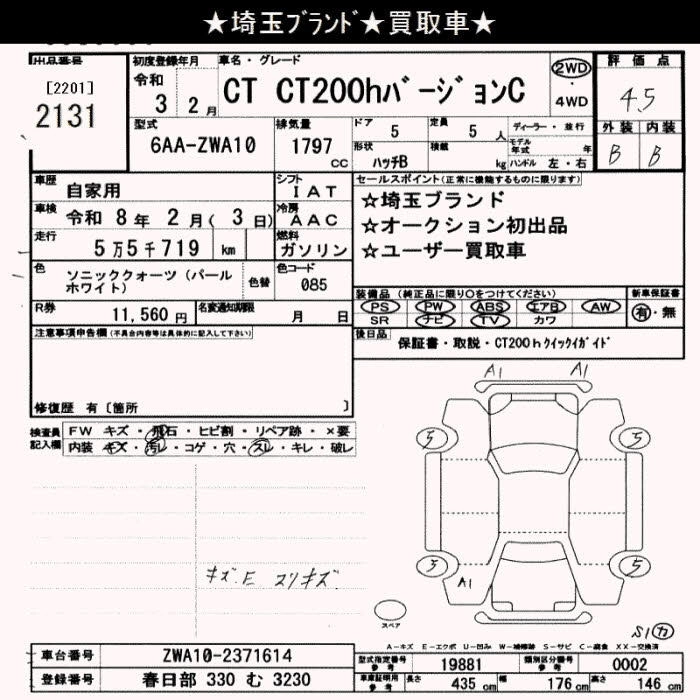 ★埼玉ブランド★買取車★
出品番号 初度登録年月 車名・グレード 評価点
[2201] 令和 2WD
2131 3 2月 CT CT200hバージョンC ・4WD 4.5
型式 排気量 ドア 5 定員 5人 ディーラー・並行 外装 内装
6AA-ZWA10 1797cc 形状 ハッチB 積載 kg モデル年式 年 ハンドル 左・右 B B
車歴 自家用 シフト IAT セールスポイント(正常に機能するものに限ります)
車検 令和 8年 2月(3日) 冷房 AAC ☆埼玉ブランド
☆オークション初出品
走行 5万5千719 km 燃料 ガソリン ☆ユーザー買取車
色 ソニッククォーツ(パールホワイト) 色替 色コード 085
装備品(純正品に限り○をつけてください) 新車保証書
R券 11,560円 名変通知期限 月 日 PS PW ABS エアB AW 有・無
SR ナビ TV カワ
注意事項申告欄(不具合内容等は具体的に記入して下さい) 後日品 保証書・取説・CT200hクイックガイド
修復歴 有〔箇所 〕
検査員記入欄 FW キズ・飛石・ヒビ割・リペア跡・×要
内装 キズ・汚レ・コゲ・穴・スレ・キレ・破レ
A1 A1
5 5
5 A1 5
キズ.E スリキズ.
スペア
S1 カ
A-キズ E-エクボ U-凹み W-補修跡 S-サビ C-腐食 XX-交換済
車台番号 ZWA10-2371614 型式指定番号 参考 19881 類別区分番号 参考 0002
登録番号 春日部 330 む 3230 車庫証明用 参考 長さ 435cm 幅 176cm 高さ 146cm